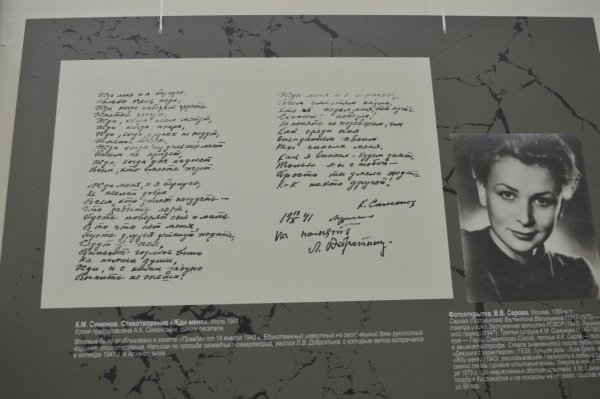 Жди меня и я вернусь.
Только очень жди,
Жди когда наводят грусть
Желтые дожди,
Жди, когда снега метут,
Жди, когда жара,
Жди, когда других не ждут,
Жди, когда из дальних мест
Писем не придет,
Жди когда уже надоест
Всем, кто вместе ждет.
Жди меня, и я вернусь,
Не желай добра
Всем, кто знает наизусть
Что забыть пора,
Пусть поверят сын и мать
В то что нет меня,
Пусть друзья устанут ждать,
Сядут у огня,
Выпьют горькое вино
На помин души,
Жди, и с ними заодно
Выпить не спеши.
Жди меня и я вернусь,
Всем смертям назло,
Кто не ждал меня, тот пусть
Скажет: повезло,
Не понять не ждавшим, им
Как среди огня
Ожиданием своим
Ты спасла меня,
Как я выжил - будем знать
Только мы с тобой -
Просто ты умела ждать
Как никто другой!
К. Симонов
На память
Л. Добротину.
К.М. Симонов. Стихотворение «Жди меня». Июль 1941 г.
Копия предоставлена А.К. Симоновым, сыном писателя.
Впервые было опубликовано в газете «Правда» от 14 января 1942 г. Единственный известный на сегодняшний день рукописный
вариант стихотворения. Написан по просьбе разведчика-североморца, майора Л.В. Добротина, с которым автор встречался
в октябре 1941 г. в Архангельске.
Фотооткрытка. В.В. Серова. Москва. 1950-е гг.
Серова (Половикова) Валентина Васильевна (1917-1975) –
театра и кино. Заслуженная артистка РСФСР